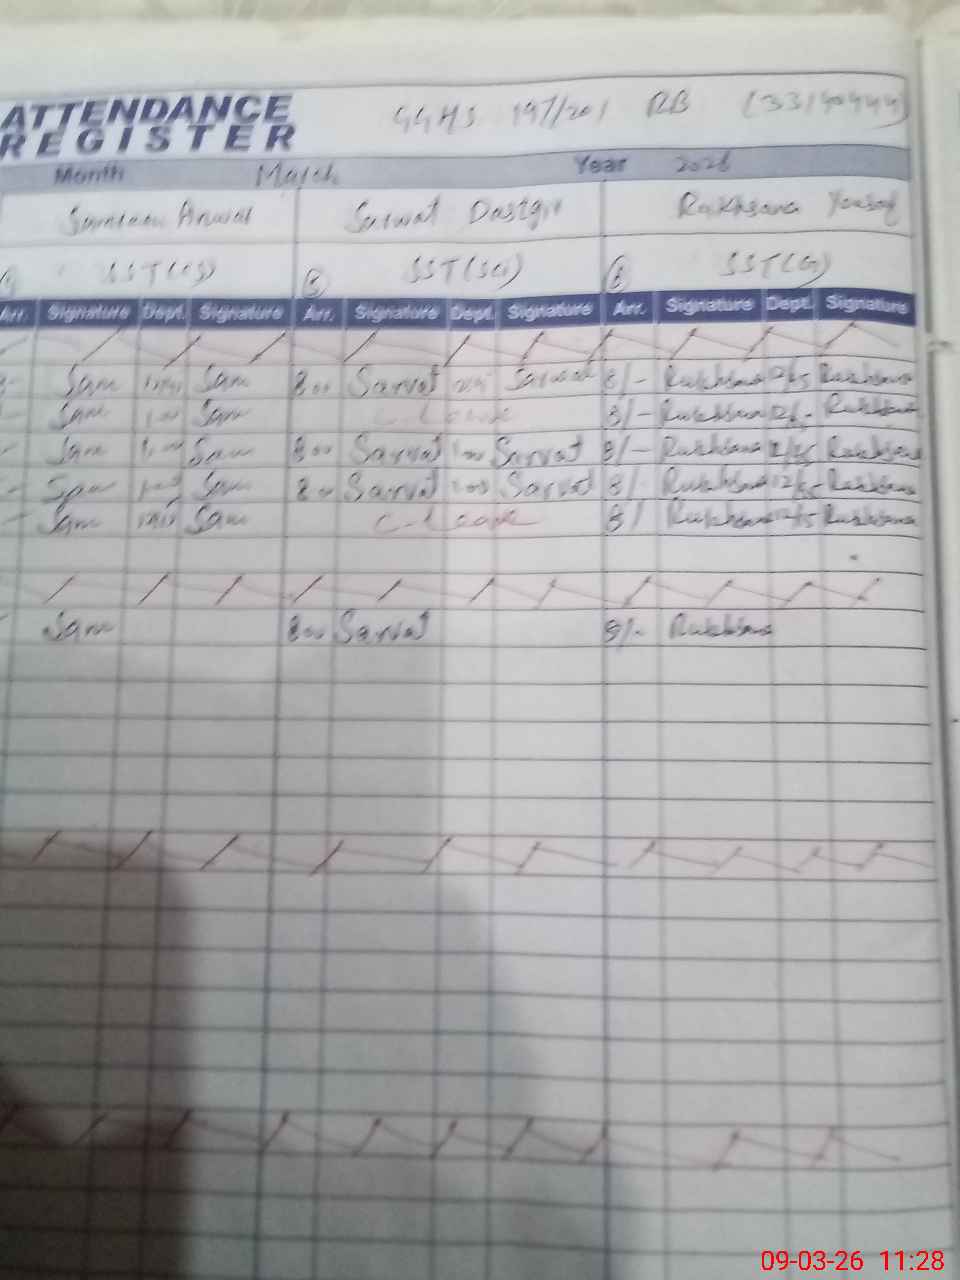 ATTENDANCE GGHS 197/201 RB
REGISTER
Month March Year 2026
Anwar Sarwat Dastgir Rukhsana Yousaf
5 6
Arr. Signature Dept. Signature Arr. Signature Dept. Signature Arr. Signature Dept. Signature
Sam Sam 8 00 Sarwat Sarwat 8/- Rukhsana Rukhsana
Sam Sam C-Leave 8/- Rukhsana Rukhsana
Sam Sam 8 00 Sarwat 1 00 Sarwat 8/- Rukhsana Rukhsana
Sam Sam 8 00 Sarwat 1 00 Sarwat 8/- Rukhsana Rukhsana
Sam Sam C-Leave 8/ Rukhsana Rukhsana
Sam 8 00 Sarwat 8/- Rukhsana
09-03-26 11:28